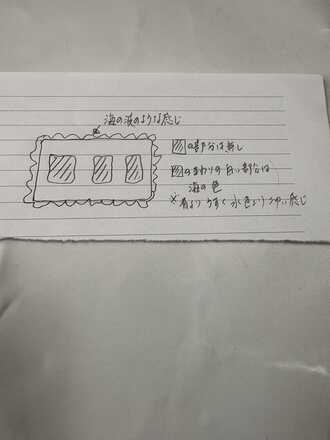 海の波のような感じ
の部分は無し
のまわりの白い部分は
海の色
※青よりうすく水色よりつよい感じ